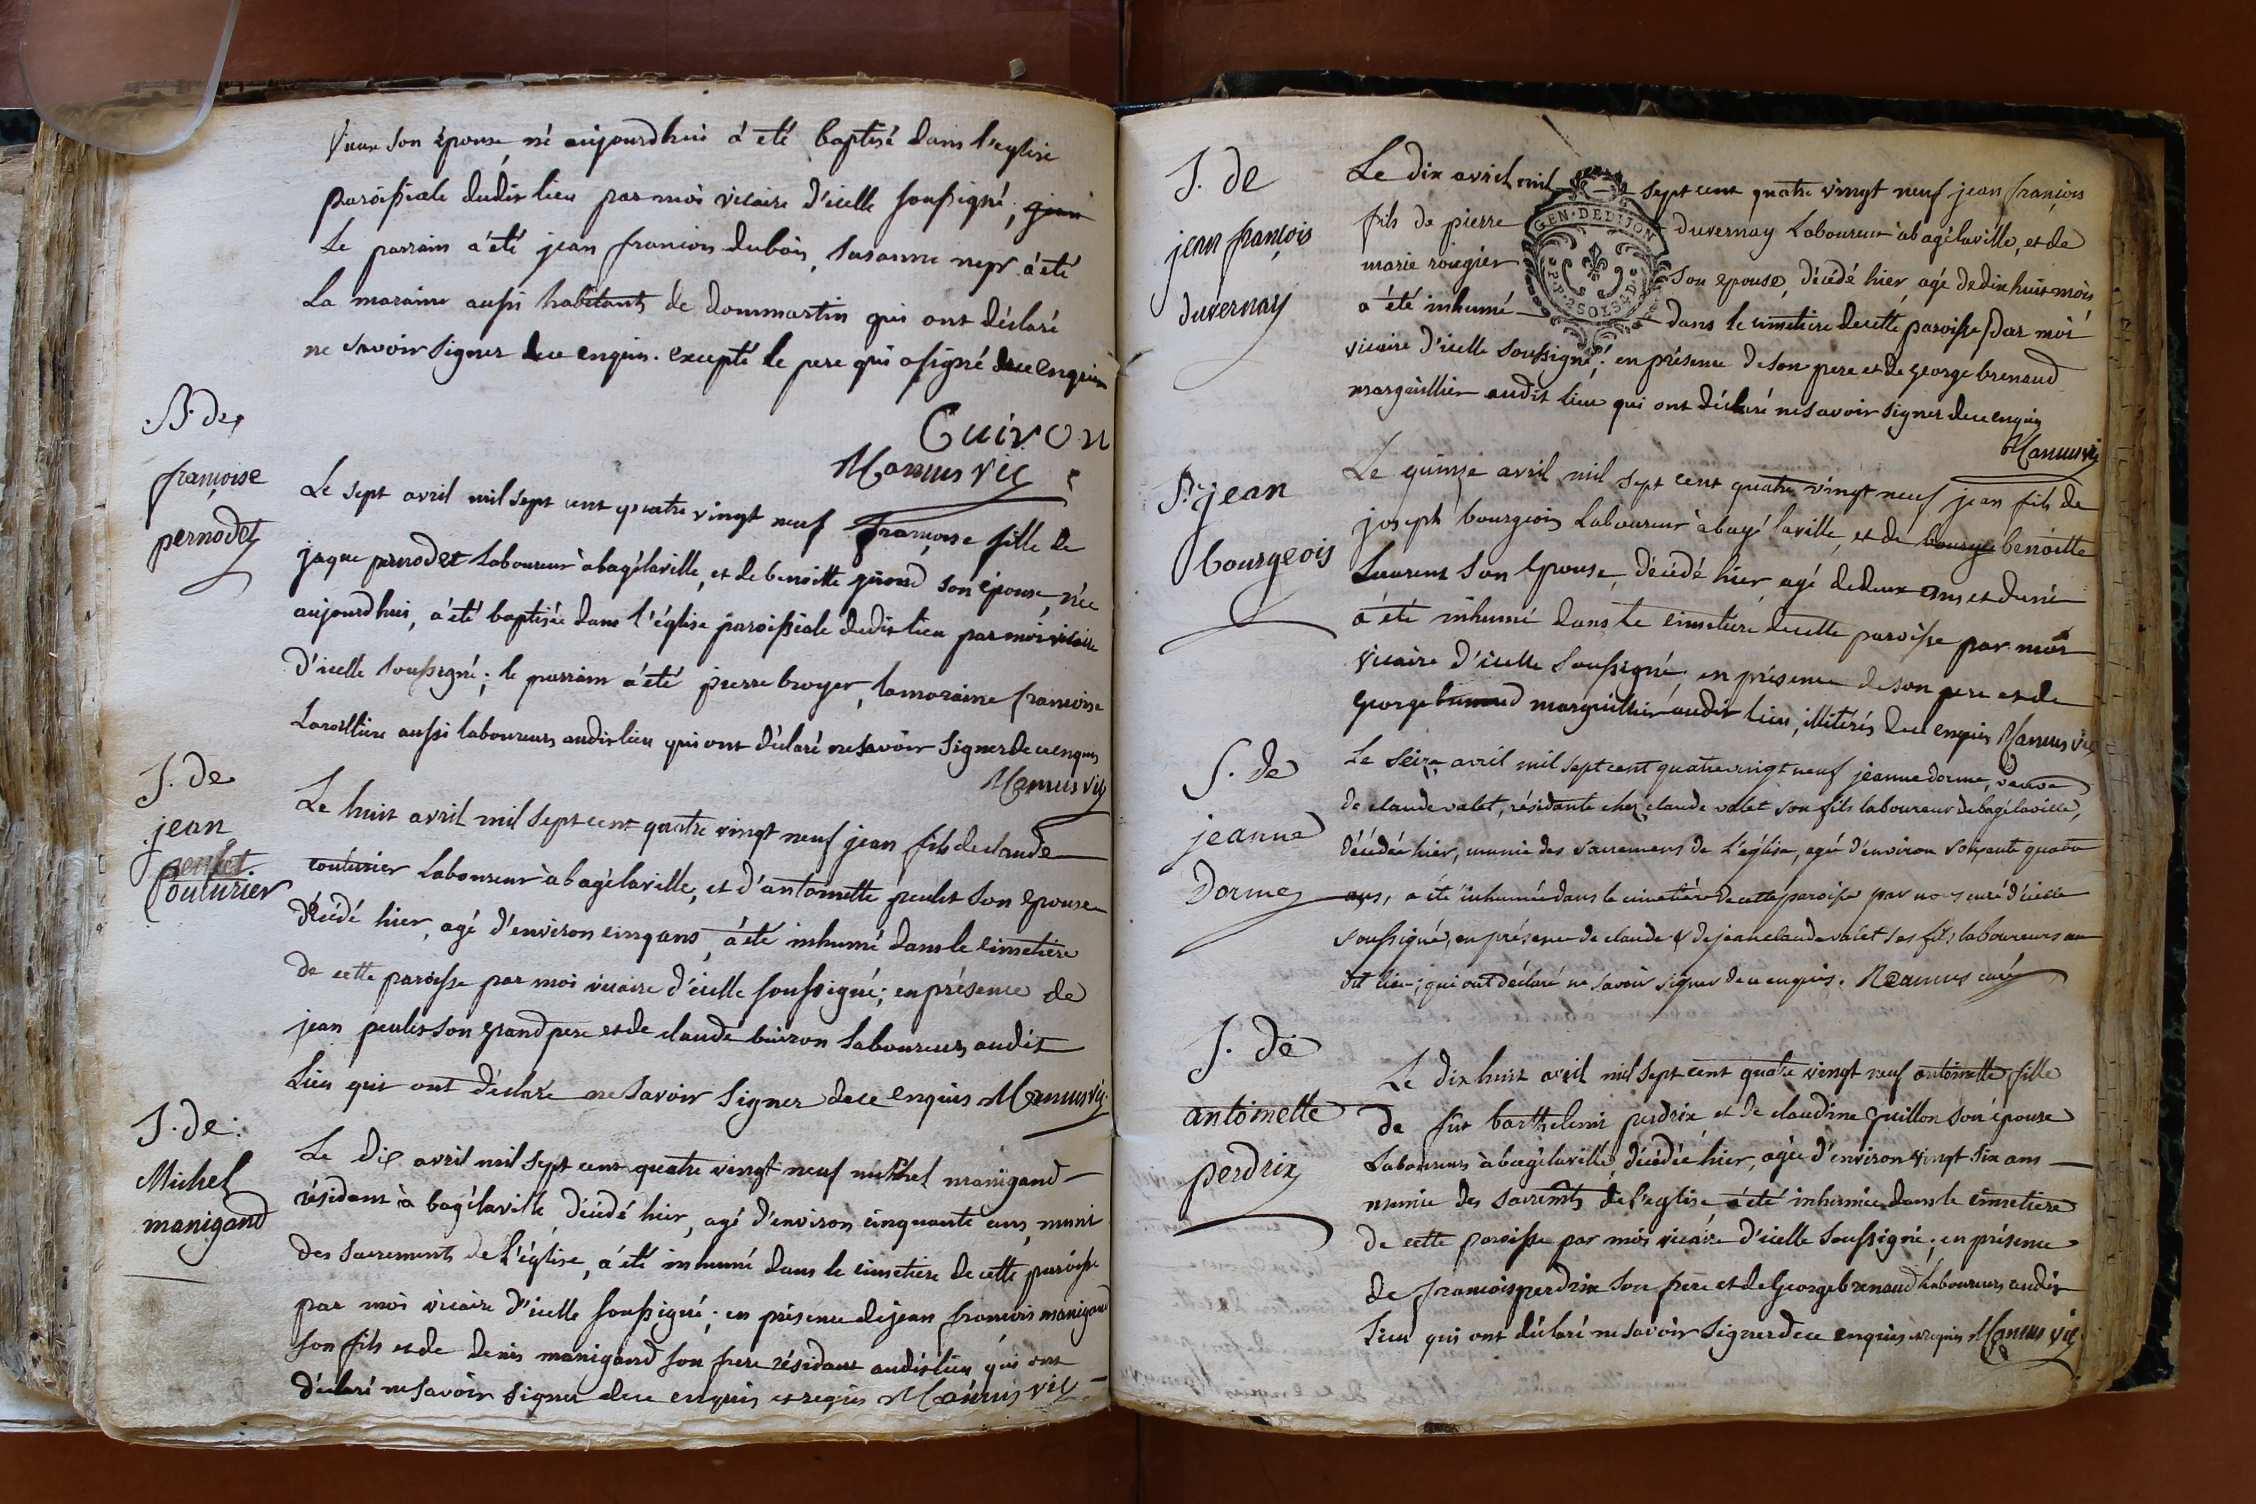 son épouse, né aujourdhui a été baptisé dans l'eglise
paroissiale dudit lieu par moi vicaire d'icelle soussigné,
Le parrain a été jean francois dubois, susanne nepr a été
La maraine aussi habitants de dommartin qui ont déclaré
ne savoir signer de ce enquis. excepté le pere qui a signé de ce enquis
Guivon
Mamus vic
B. de
françoise
pernodet
Le sept avril mil sept cent quatre vingt neuf françoise fille de
jaque pernodet Laboureur à bagélaville, et de benoitte son épouse, née
aujourdhui, a été baptisée dans l'église paroissiale dudit lieu par moi vicaire
d'icelle soussigné; le parrain a été pierre broyer, la maraine francoise
aussi laboureurs audit lieu qui ont déclaré ne savoir signer de ce enquis
Mamus vic
S. de
jean
Couturier
Le huit avril mil sept cent quatre vingt neuf jean fils de claude
couturier Laboureur à bagélaville, et d'antoinette peulet son epouse
décédé hier, agé d'environ cinq ans, a été inhumé dans le cimetiere
de cette paroisse par moi vicaire d'icelle soussigné; en présence de
jean peulet son grand pere et de claude buiron Laboureurs audit
Lieu qui ont déclaré ne savoir signer de ce enquis Mamus vic
S. de
Michel
manigand
Le dix avril mil sept cent quatre vingt neuf michel manigand
résidant à bagélaville, décédé hier, agé d'environ cinquante ans, muni
des sacrements de l'église, a été inhumé dans le cimetiere de cette paroisse
par moi vicaire d'icelle soussigné; en présence de jean francois manigand
son fils et de denis manigand son frere résidants audit lieu qui ont
déclaré ne savoir signer de ce enquis et requis Mamus vic
S. de
jean françois
duvernay
Le dix avril mil sept cent quatre vingt neuf jean françois
fils de pierre duvernay Laboureur à bagélaville, et de
marie rougier son epouse, décédé hier, agé de dix huit mois
a été inhumé dans le cimetiere de cette paroisse par moi
vicaire d'icelle soussigné; en présence de son pere et de george brenaud
marguillier audit lieu qui ont déclaré ne savoir signer de ce enquis
Mamus vic
GEN. DE DIJON
P.P. 2 SOLS 4 D.
S. de jean
bourgeois
Le quinze avril mil sept cent quatre vingt neuf jean fils de
joseph bourgeois Laboureur à bagé laville, et de benoitte
Laurent son epouse, décédé hier, agé de deux ans et demi
a été inhumé dans le cimetiere de cette paroisse par moi
vicaire d'icelle soussigné; en présence de son pere et de
george brenaud marguillier audit lieu, illitérés de ce enquis Mamus vic
S. de
jeanne
Dorme
Le seize avril mil sept cent quatre vingt neuf jeanne dorme, veuve
de claude valet, résidante chez claude valet son fils laboureur de bagélaville,
décédée hier, munie des sacremens de l'église, agée d'environ soixante quatre
ans, a été inhumée dans le cimetière de cette paroisse par nous curé d'icelle
soussigné, en présence de claude & de jean claude valet ses fils laboureurs au
dit lieu; qui ont déclaré ne savoir signer de ce enquis. Mamus curé
S. de
antoinette
perdrix
Le dix huit avril mil sept cent quatre vingt neuf antoinette fille
de fut barthelemi perdrix et de claudine guillon son épouse
Laboureurs à bagélaville, décédée hier, agée d'environ vingt six ans
munie des sacremts de l'eglise a été inhumée dans le cimetiere
de cette paroisse par moi vicaire d'icelle soussigné; en présence
de francois perdrix son frere et de George brenaud Laboureurs audit
Lieu qui ont déclaré ne savoir signer de ce enquis et requis Mamus vic